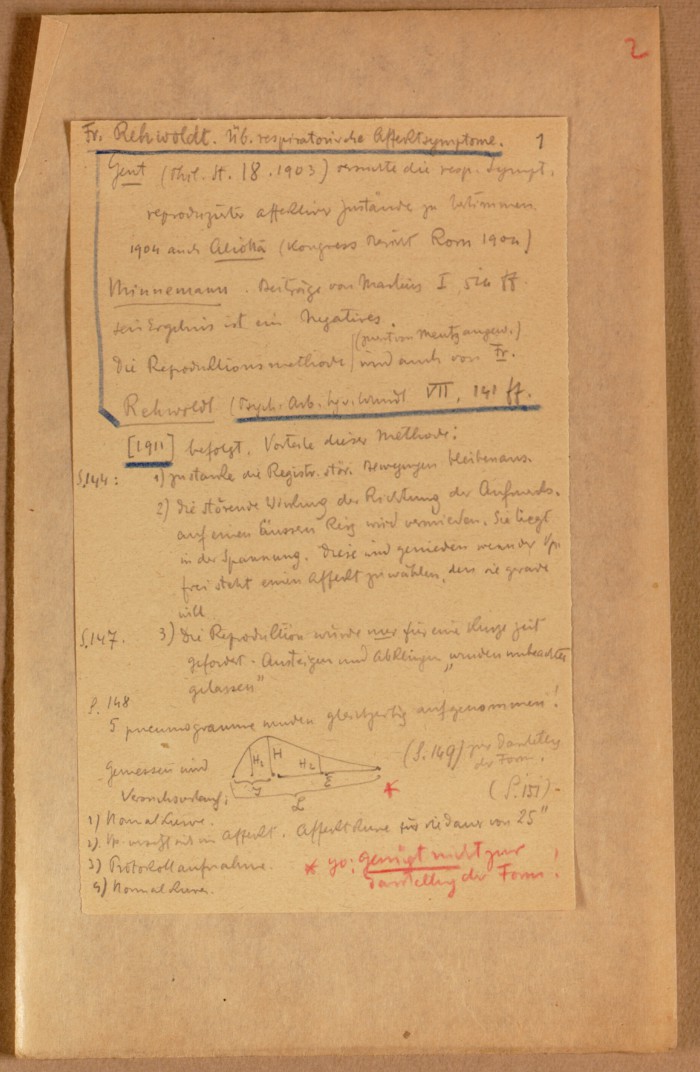 2
Fr. Rehwoldt. Üb. respiratorische Affektsymptome. 1
Gent (Phil. St. 18. 1903) versuchte die resp. Sympt.
reproduzierter affektiver Zustände zu bestimmen
1904 auch Aliotta (Kongress Rom 1904)
Minnemann. Beiträge von Martius I, 514 ff
sein Ergebnis ist ein Negatives.
Die Reproduktionsmethode (zuerst von Mentz angew.)
wird auch von Fr.
Rehwoldt (Psych. Arb. VII, 141 ff.
[1911] befolgt. Vorteile dieser Methode:
S. 144: 1) Zustande die Registr. stör. Bewegungen bleiben aus.
2) Die störende Wirkung der Richtung der Aufmerks.
auf einen äussern Reiz wird vermieden. Sie liegt
in der Spannung. Diese wird gemieden wenn der Vp
frei steht einen Affekt zu wählen, den sie gerade
will
S. 147. 3) Die Reproduktion würde nur für eine kurze Zeit
gefordert. Ansteigen und Abklingen „wurden unbeachtet
gelassen"
S. 148
5 Pneumogramme wurden gleichzeitig aufgenommen!
Gemessen wird
H1 H H2
J E
L
*
(S. 149) zur Darstellg
der Form.
(S. 151)
Versuchsverlauf:
1) Normalkurve.
2) Vp. Affekt. Affektkurve für die Dauer von 25"
3) Protokollaufnahme.
4) Normalkurve.
* genügt nicht zur
Darstellg der Form!